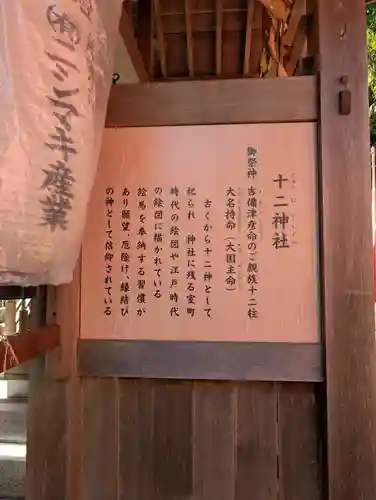 十二神社
じゅうにじんじゃ
御祭神 吉備津彦命のご親族十二柱
大名持命（大国主命）
古くから十二神として
祀られ 神社に残る室町
時代の絵図や江戸時代
の絵図に描かれている
絵馬を奉納する習慣が
あり願望、厄除け、縁結び
の神として信仰されている
㈲ニシマキ産業